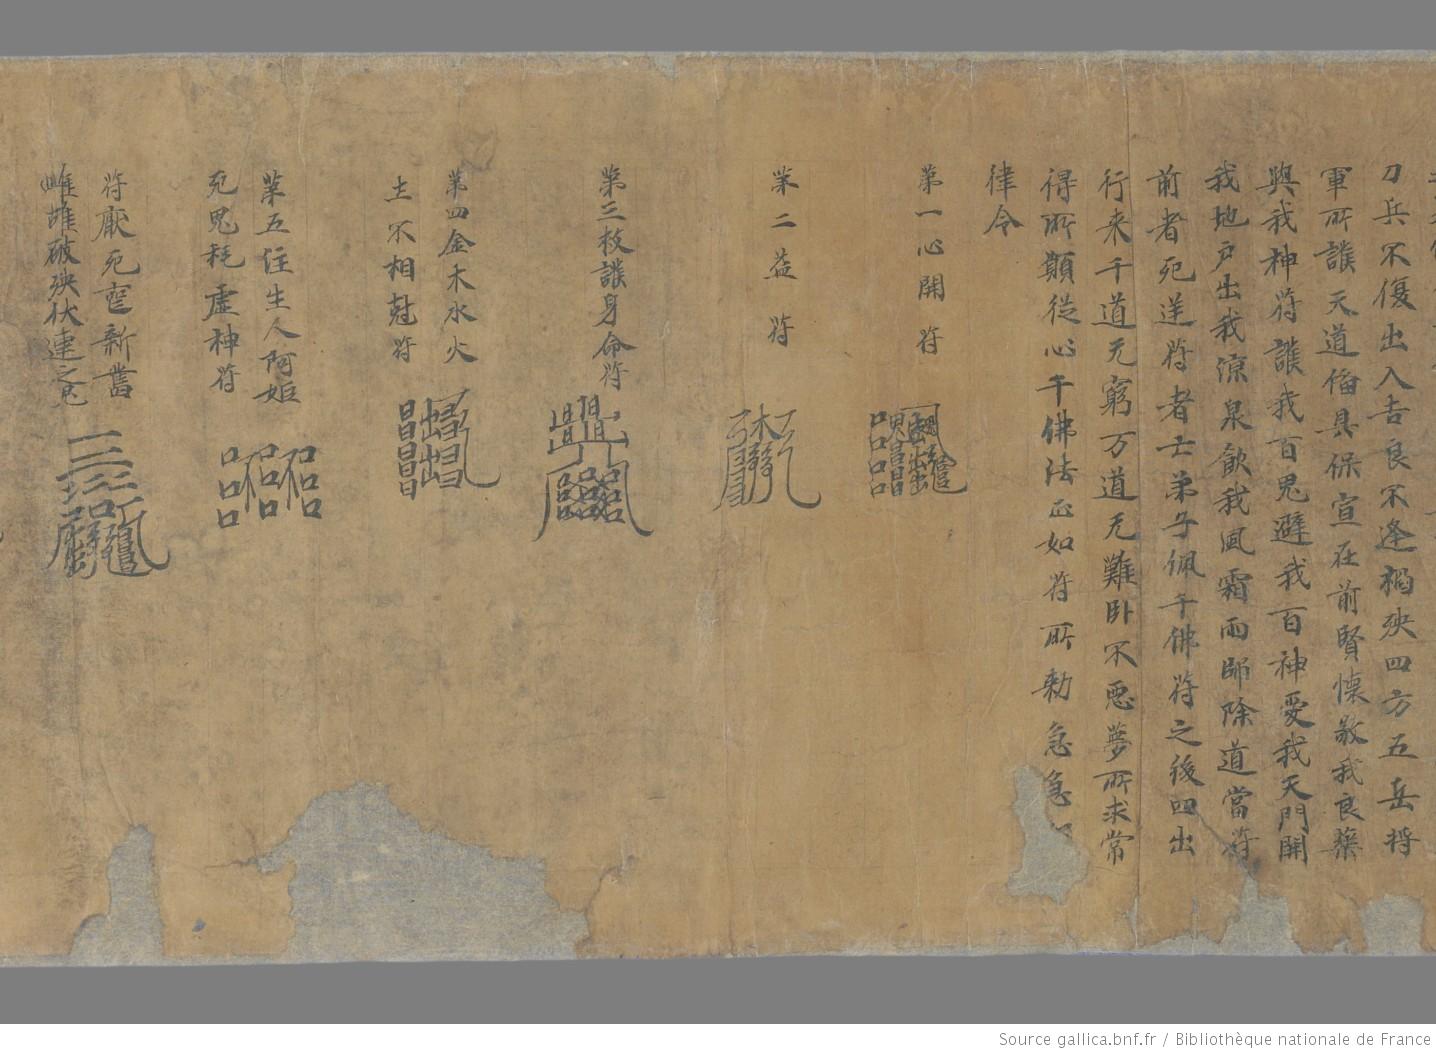 刀兵不復出入吉良不逢禍殃四方五岳將
軍所護天道俻具保宣在前賢懷敬我良藥
與我神符護我百鬼避我百神愛我天門開
我地戶出我涼泉飲我風霜雨師除道當符
前者死送符者士弟子佩千佛符之後四出
行来千道无窮万道无難卧不惡夢所求常
得所願従心千佛法正如符所勑急急
律令
第一心開符
第二益符
第三枚護身命符
第四金木水火
土不相尅符
第五注生人阿姫
死鬼耗虛神符
符厭死新舊
雌雄破殃伏連之
Source gallica.bnf.fr / Bibliothèque nationale de France